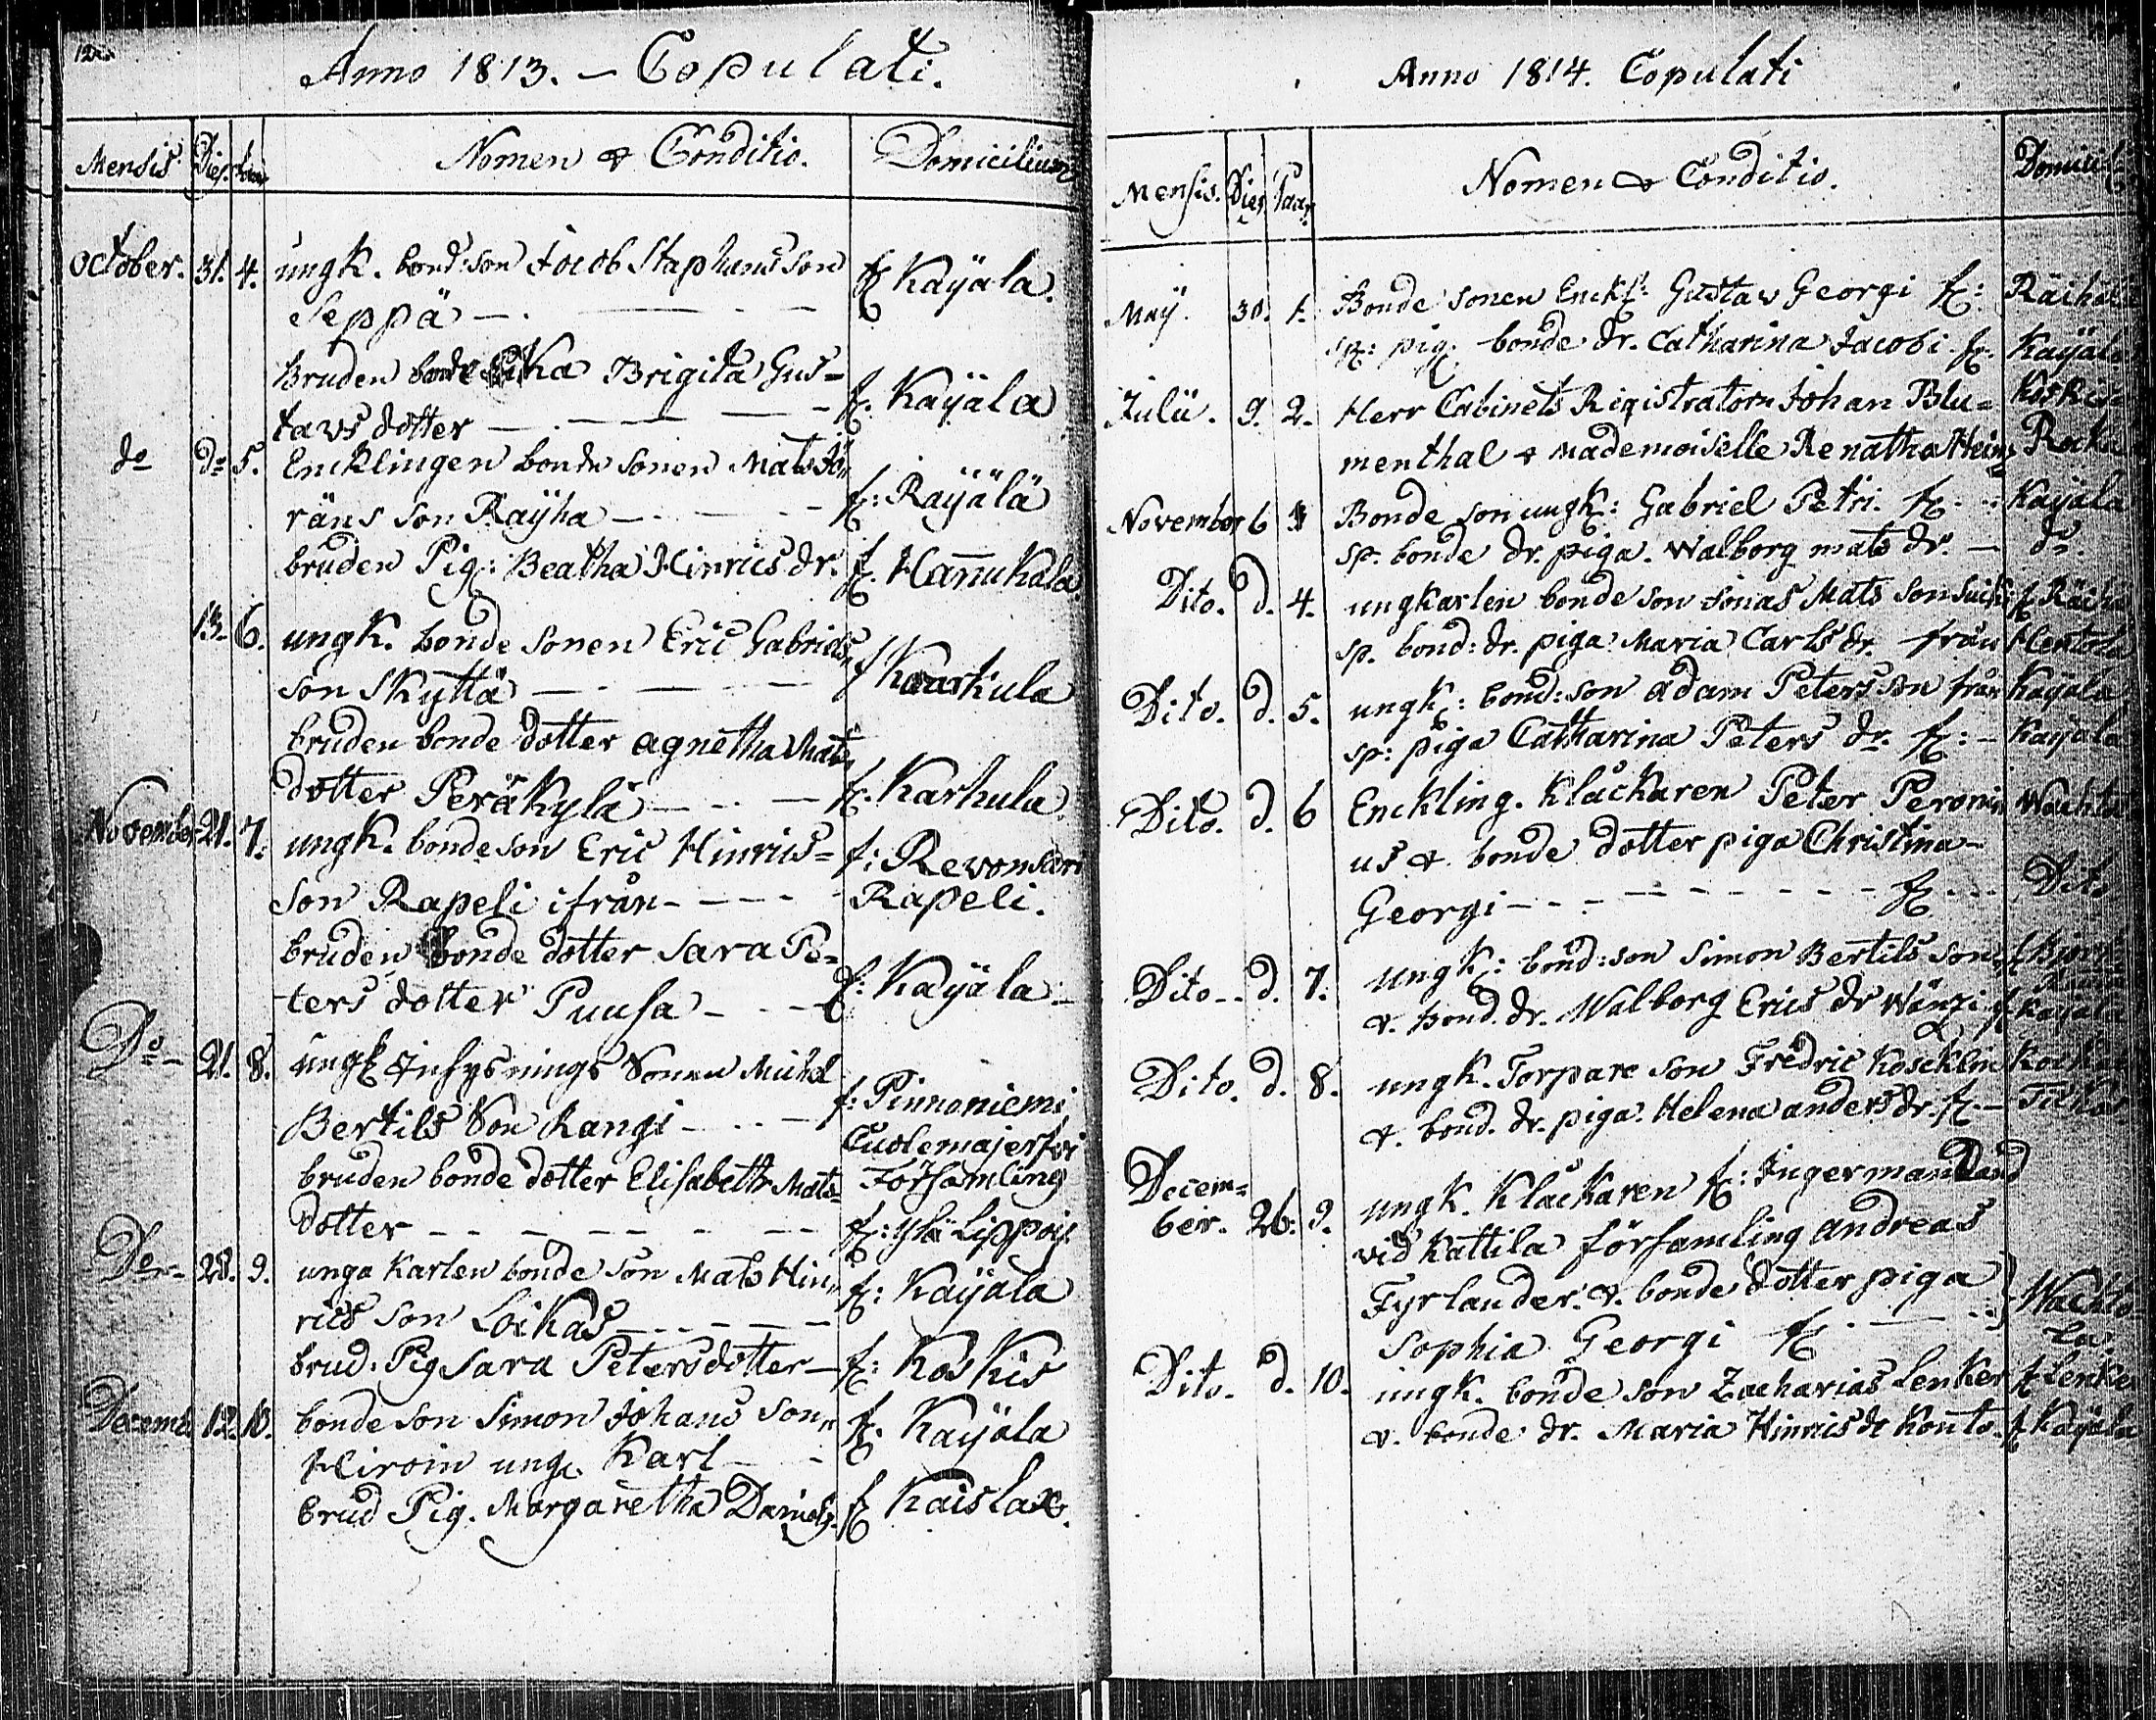 Anno 1813. – Copulati.
Mensis Dies Nomen & Conditio. Domicilium
October. 31. 4. ungk. bond: son Jacob Staphans son f: Kayala.
Seppä
Bruden bonde Brigita Gus=
tavs dotter f: Kayala
do do 5. Encklingen bonde sonen Mats Jö
räns son Rayha f: Rayälä
bruden Pig: Beatha Hinrics dr. f: Hannukala
13. 6. ungk. bonde sonen Eric Gabriels
son Skyttä f Kaarkula
bruden bonde dotter agnetha Mats
dotter Peräkylä f: Karhula
November 21. 7. ungk. bonde son Eric Hinrics= f: Revonsari
son Rapeli ifrån Rapeli.
bruden bonde dotter Sara Pe=
ters dotter Puusa f: Kayala
Do 21. 8. ungk Inhysnings Sonen Michel
Bertils Son Kangi f: Pinnoniemi
Cuolemajerfvi
bruden bonde dotter Elisabeth Mats= Församling
dotter f: Ylä Lippois
Do 28. 9. unga Karlen bonde son Mats Hin
rics son Loikas f: Kayala
brud: Pig Sara Petersdotter f: Koskis
Decemb 12. 10. bonde son Simon Johans son f: Kayala
Hiroin ung. Karl
brud Pig. Margaretha Daniels f Kaislax.
Anno 1814. Copulati
Mensis. Dies Paar Nomen & Conditio. Domicil
May. 30. 1. Bonde sonen Enckl: Gustav Georgi f: Räihä
sp: pig. bonde dr. Catharina Jacobi f: Kayala
Julii. 9. 2. Herr Cabinets Registratorn Johan Blu= Koskis
menthal & Mademoiselle Renatha Hein Rocka
November 6 3 Bonde son ungk: Gabriel Petri. f: Kayala
sp. bonde dr. piga. Walborg mats dr. do.
Dito. d. 4. ungkarlen bonde son Jonas Mats son f Räihä
sp. bond: dr. piga Maria Carls dr. från Hentola
Dito. d. 5. ungk: bond: son adam Peters son från Kayala
sp: piga Catharina Peters dr. f: Kayala
Dito. d. 6 Enckling. Klåckaren Peter Peroni Wachto
us & bonde dotter piga Christina
Georgi f: Dito
Dito d. 7. ungk: bond: son Simon Bertils son f
&. bond. dr. Walborg Erics dr Wänzi f Kayala
Dito. d. 8. ungk. Torpare son Fredric
&. bond. dr. piga. Helena anders dr. f:
Decem=
ber. 26. 9. ungk. Klåckaren f: Ingermanland
vid Kattila församling andreas
Fyrlander. &. bonde dotter piga
Sophia Georgi f: Wachto
la.
Dito. d. 10. ungk. bonde son Zacharias Lenker f Lenke
&. bonde dr. Maria Hinrics dr Konto. f Kayala